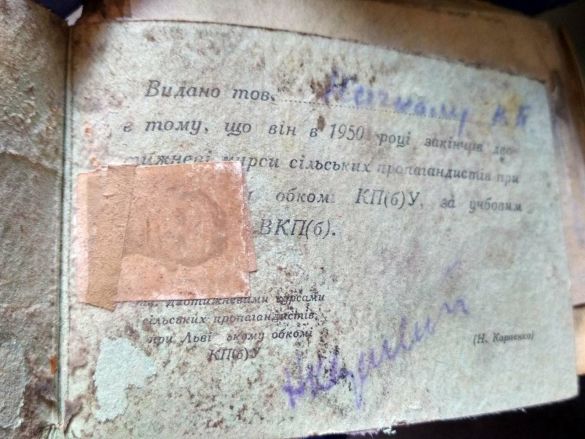 Видано тов.
в тому, що він в 1950 році закінчив дво-
тижневі курси сільських пропагандистів при
обкомі КП(б)У, за учбовим
ВКП(б).
Двотижневими курсами
сільських пропагандистів,
при Льві ському обкомі
КП(б)У
(Н. Карпенко)